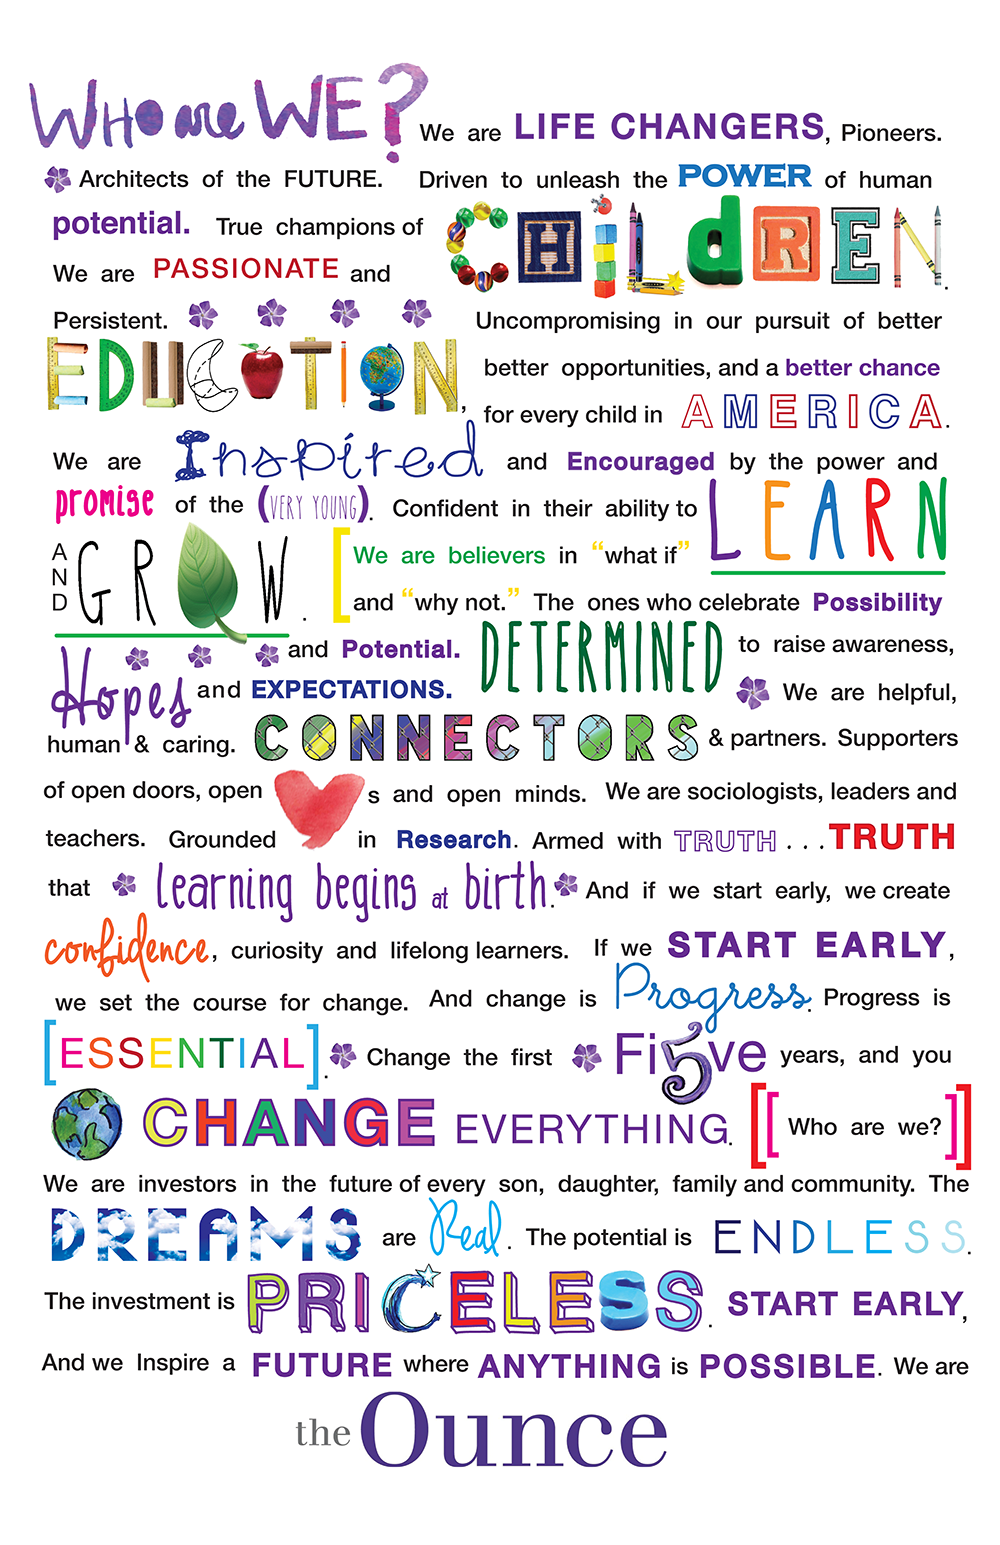 WHO are WE? We are LIFE CHANGERS, Pioneers.
Architects of the FUTURE. Driven to unleash the POWER of human
potential. True champions of CHILDREN.
We are PASSIONATE and
Persistent. Uncompromising in our pursuit of better
EDUCATION, better opportunities, and a better chance
for every child in AMERICA.
We are Inspired and Encouraged by the power and
promise of the (VERY YOUNG). Confident in their ability to LEARN
AND GROW. [We are believers in “what if”
and “why not.” The ones who celebrate Possibility
and Potential. DETERMINED to raise awareness,
Hopes and EXPECTATIONS. We are helpful,
human & caring. CONNECTORS & partners. Supporters
of open doors, open s and open minds. We are sociologists, leaders and
teachers. Grounded in Research. Armed with TRUTH . . . TRUTH
that learning begins at birth. And if we start early, we create
confidence, curiosity and lifelong learners. If we START EARLY,
we set the course for change. And change is Progress. Progress is
[ESSENTIAL]. Change the first Fi5ve years, and you
CHANGE EVERYTHING. [[Who are we?]]
We are investors in the future of every son, daughter, family and community. The
DREAMS are Real. The potential is ENDLESS.
The investment is PRICELESS. START EARLY,
And we Inspire a FUTURE where ANYTHING is POSSIBLE. We are
the Ounce